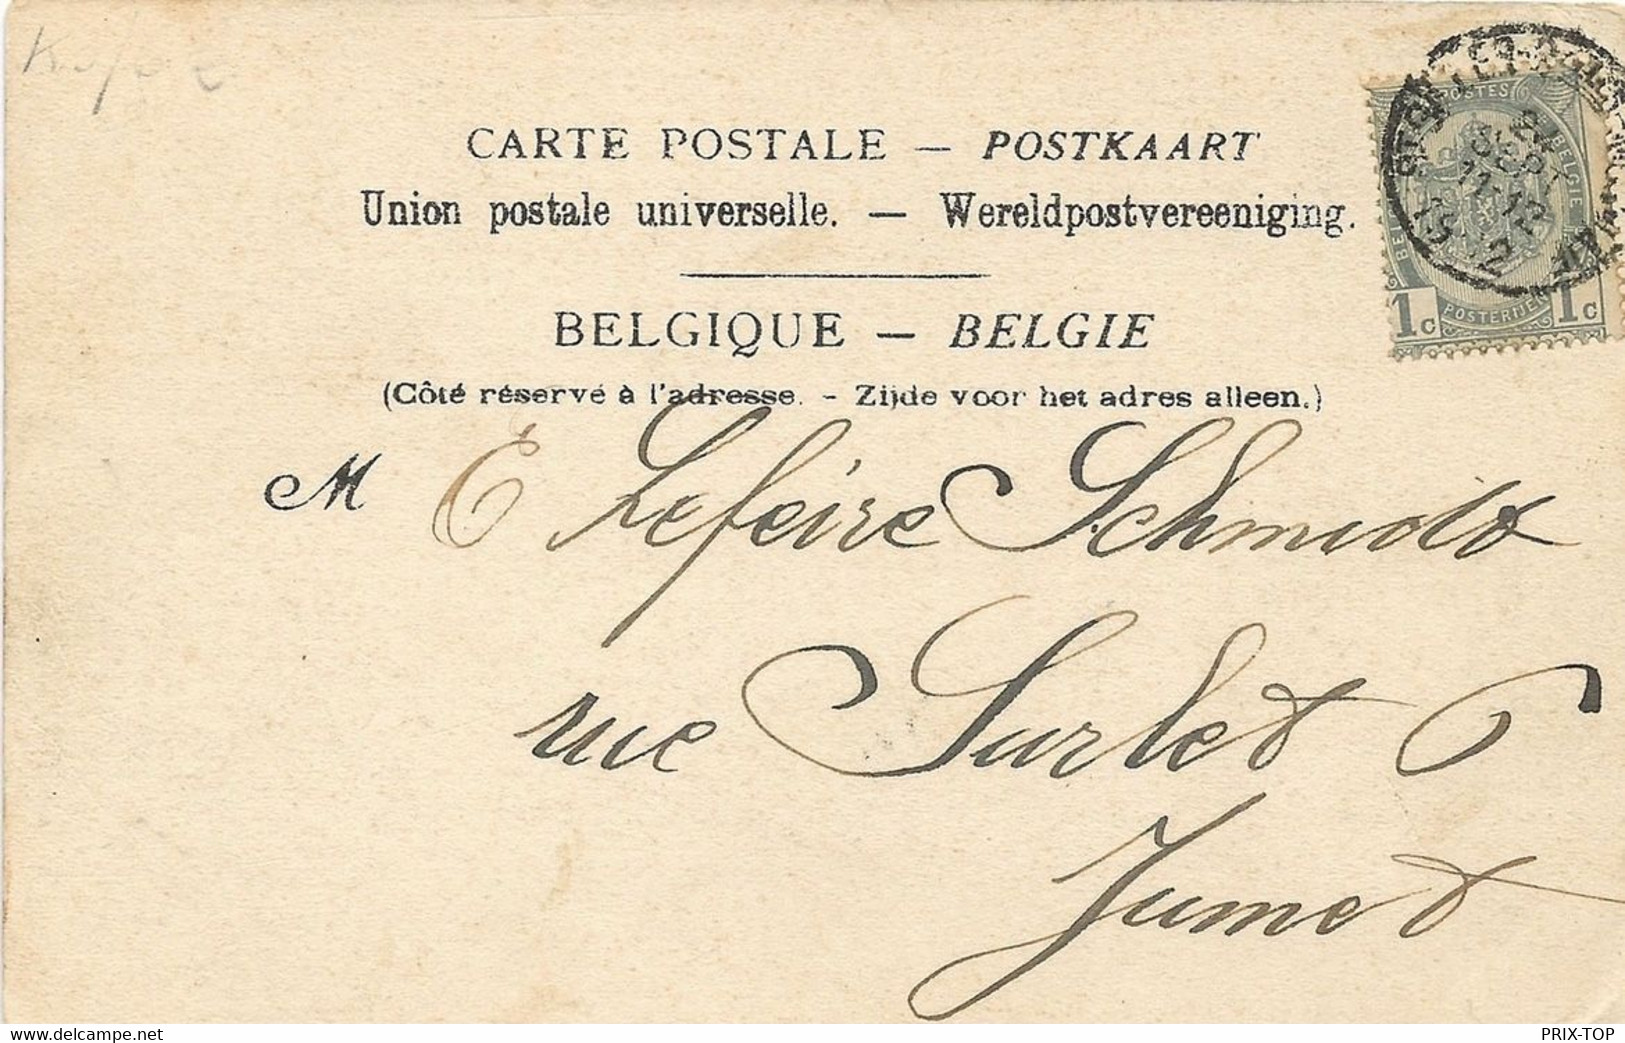 CARTE POSTALE — POSTKAART
Union postale universelle. — Wereldpostvereeniging.
BELGIQUE — BELGIE
(Côté réservé à l'adresse. - Zijde voor het adres alleen.)
POSTES
BELGIE
1c POSTERIJEN 1c
24
SEPT
11-12
M E Lefeire Schmidt
rue Surlet 6
Jumet
delcampe.net
PRIX-TOP